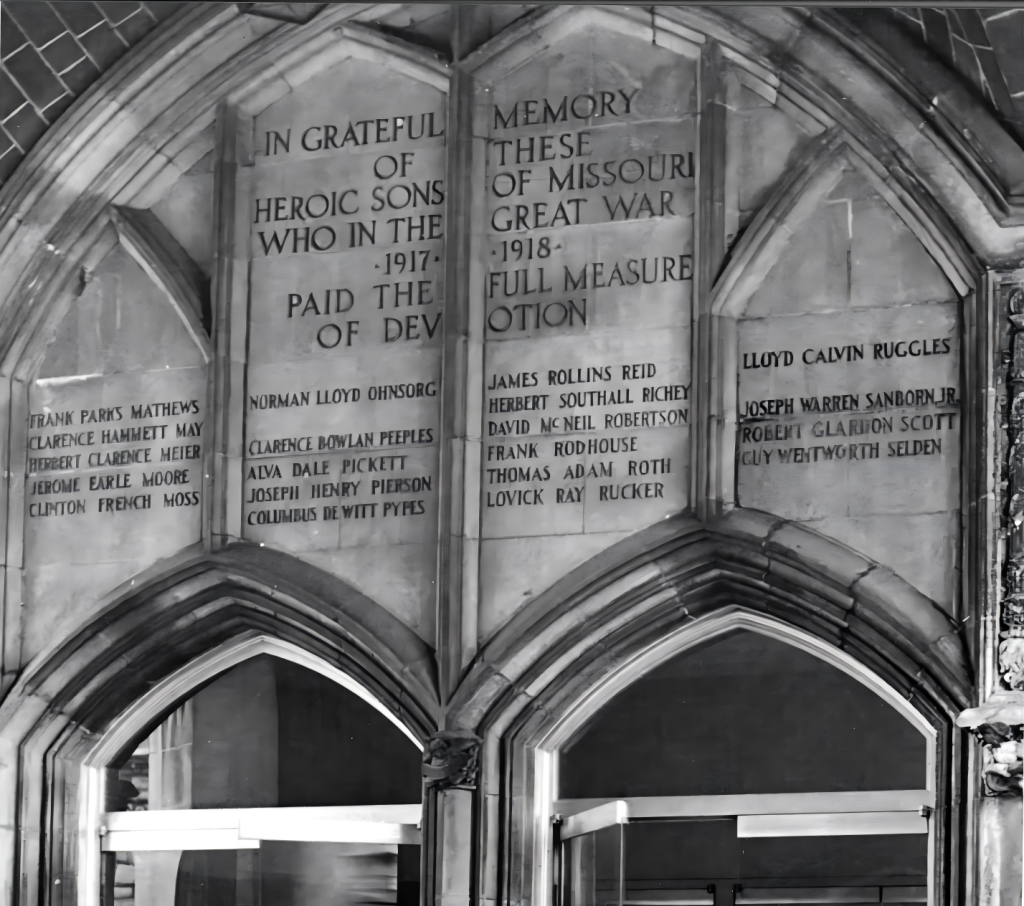 IN GRATEFUL MEMORY
OF THESE
HEROIC SONS OF MISSOURI
WHO IN THE GREAT WAR
·1917· ·1918·
PAID THE FULL MEASURE
OF DEVOTION
FRANK PARKS MATHEWS
CLARENCE HAMMETT MAY
HERBERT CLARENCE MEIER
JEROME EARLE MOORE
CLINTON FRENCH MOSS
NORMAN LLOYD OHNSORG
CLARENCE BOWLAN PEEPLES
ALVA DALE PICKETT
JOSEPH HENRY PIERSON
COLUMBUS DE WITT PYPES
JAMES ROLLINS REID
HERBERT SOUTHALL RICHEY
DAVID McNEIL ROBERTSON
FRANK RODHOUSE
THOMAS ADAM ROTH
LOVICK RAY RUCKER
LLOYD CALVIN RUGGLES
JOSEPH WARREN SANBORN, JR.
ROBERT GLARDON SCOTT
GUY WENTWORTH SELDEN